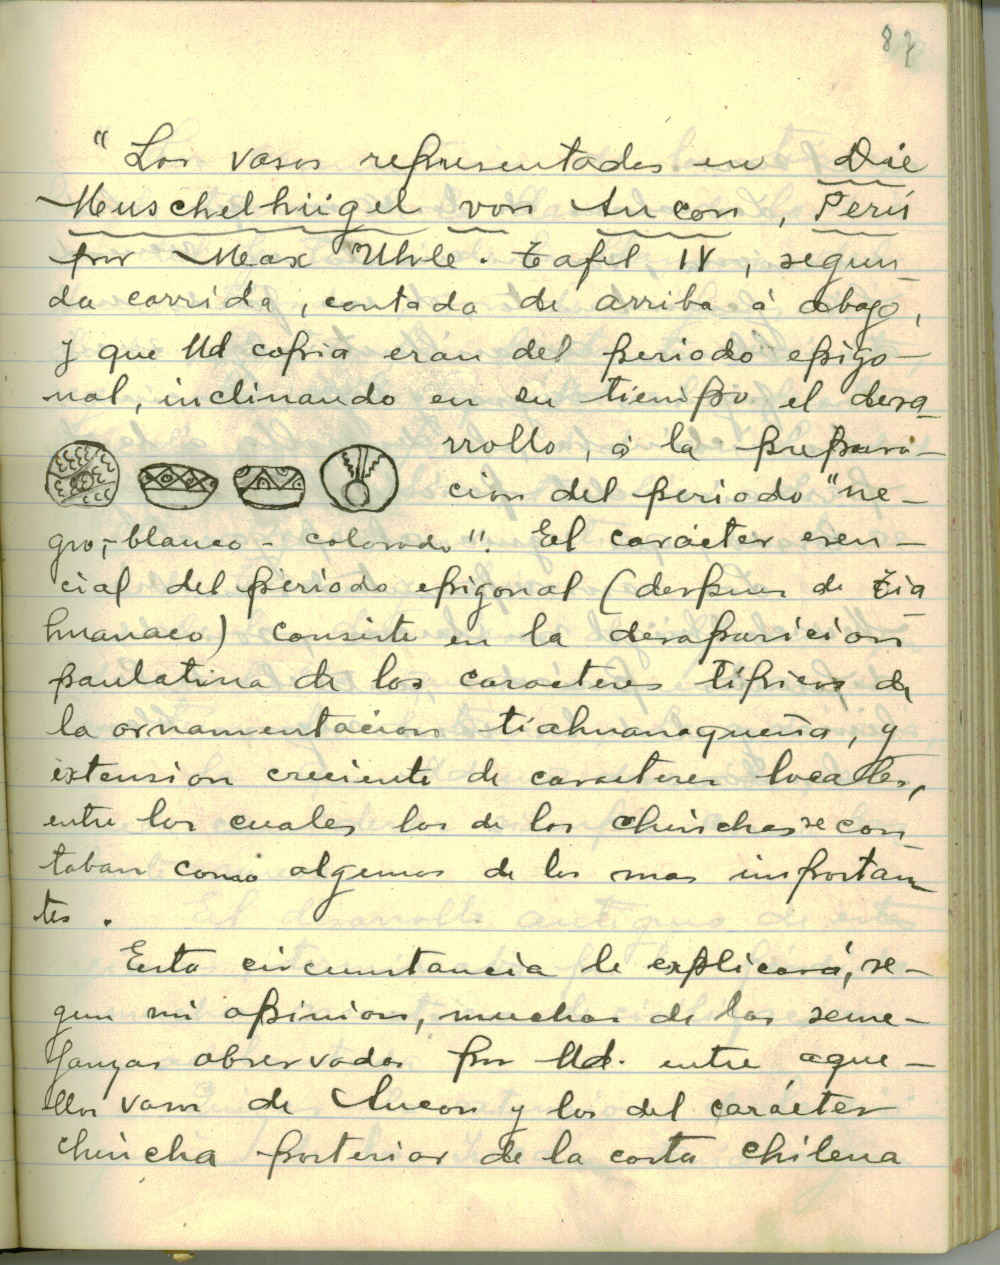 87
"Los vasos representados en Die
Muschelhügel von Ancon, Perú
por Max Uhle. Tafel IV, segun
da corrida, contada de arriba á abajo,
y que Ud copia eran del periodo epigo-
nal, inclinando en su tiempo el desa-
rrollo, á la prepara-
cion del periodo "ne-
gro,-blanco-colorado". El carácter esen-
cial del periodo epigonal (despues de Tia
huanaco) consiste en la desaparicion
paulatina de los caracteres típicos de
la ornamentacion tiahuanaqueña, y
extension creciente de caracteres locales,
entre los cuales los de los chinchas se con
taban como algunos de los mas importan
tes.
Esta circunstancia le explicará, se-
gun mi opinion, muchas de las seme-
janzas observadas por Ud. entre aque-
llos vasos de Ancon y los del carácter
chincha posterior de la costa chilena